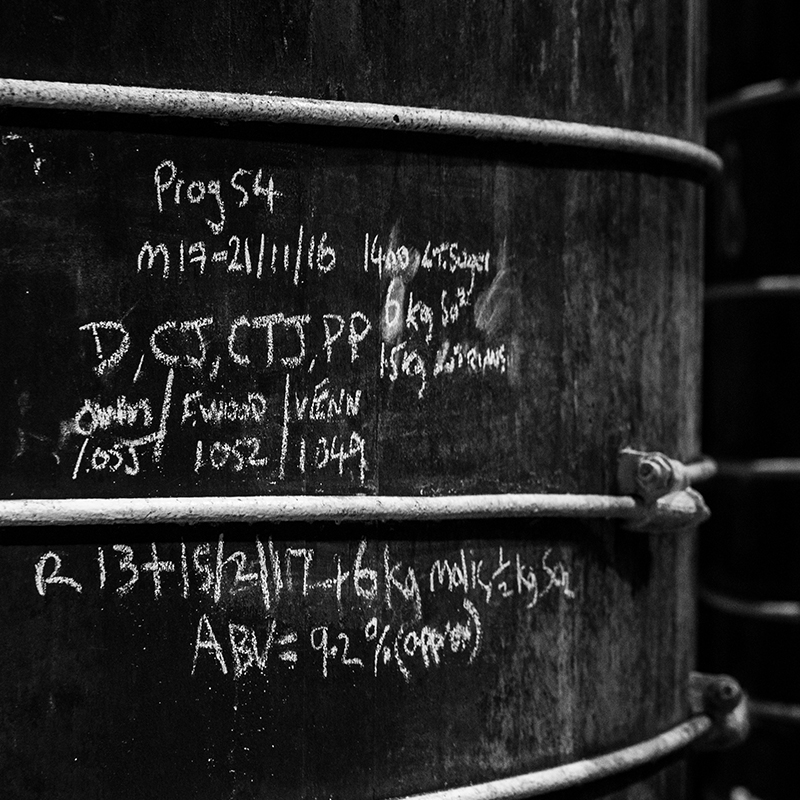 Prog 54
M 17-21/11/16 1400 LT. Sugar
6 kg So²
D, CJ, CTJ, PP
15kg
/ F.WOOD / VENN
1.055 / 1.052 / 1.049
R 13+15/2/17 + 6kg malic, ½ kg So₂
ABV = 9.2 % (approx)